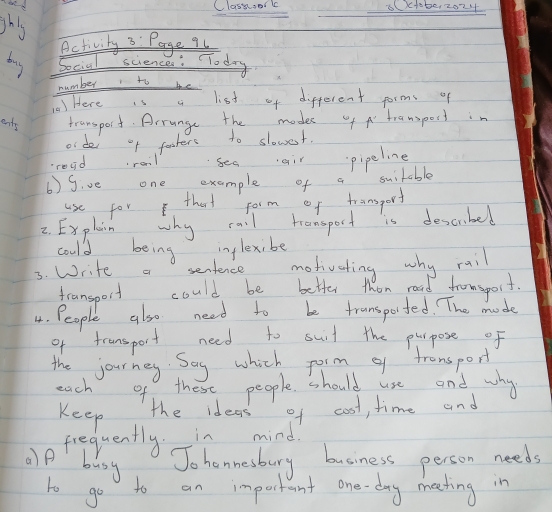 Classwork 8 October 2024
Activity 3: Page 96
Social science: Today
number 1 to be
1a) Here is a list of different forms of
transport. Arrange the modes of transport in
order of fasters to slowest.
·road ·rail ·sea ·air ·pipeline
b) Give one example of a suitable
use for that form of transport
2. Explain why rail transport is described
could being inflexibe
3. Write a sentence motivating why rail
transport could be better than road transport.
4. People also need to be transported. The mode
of transport need to suit the purpose of
the journey. Say which form of transport
each of these people should use and why.
Keep the ideas of cost, time and
frequently in mind.
a) A busy Johannesbury business person needs
to go to an important one-day meeting in
ghly
buy
ents